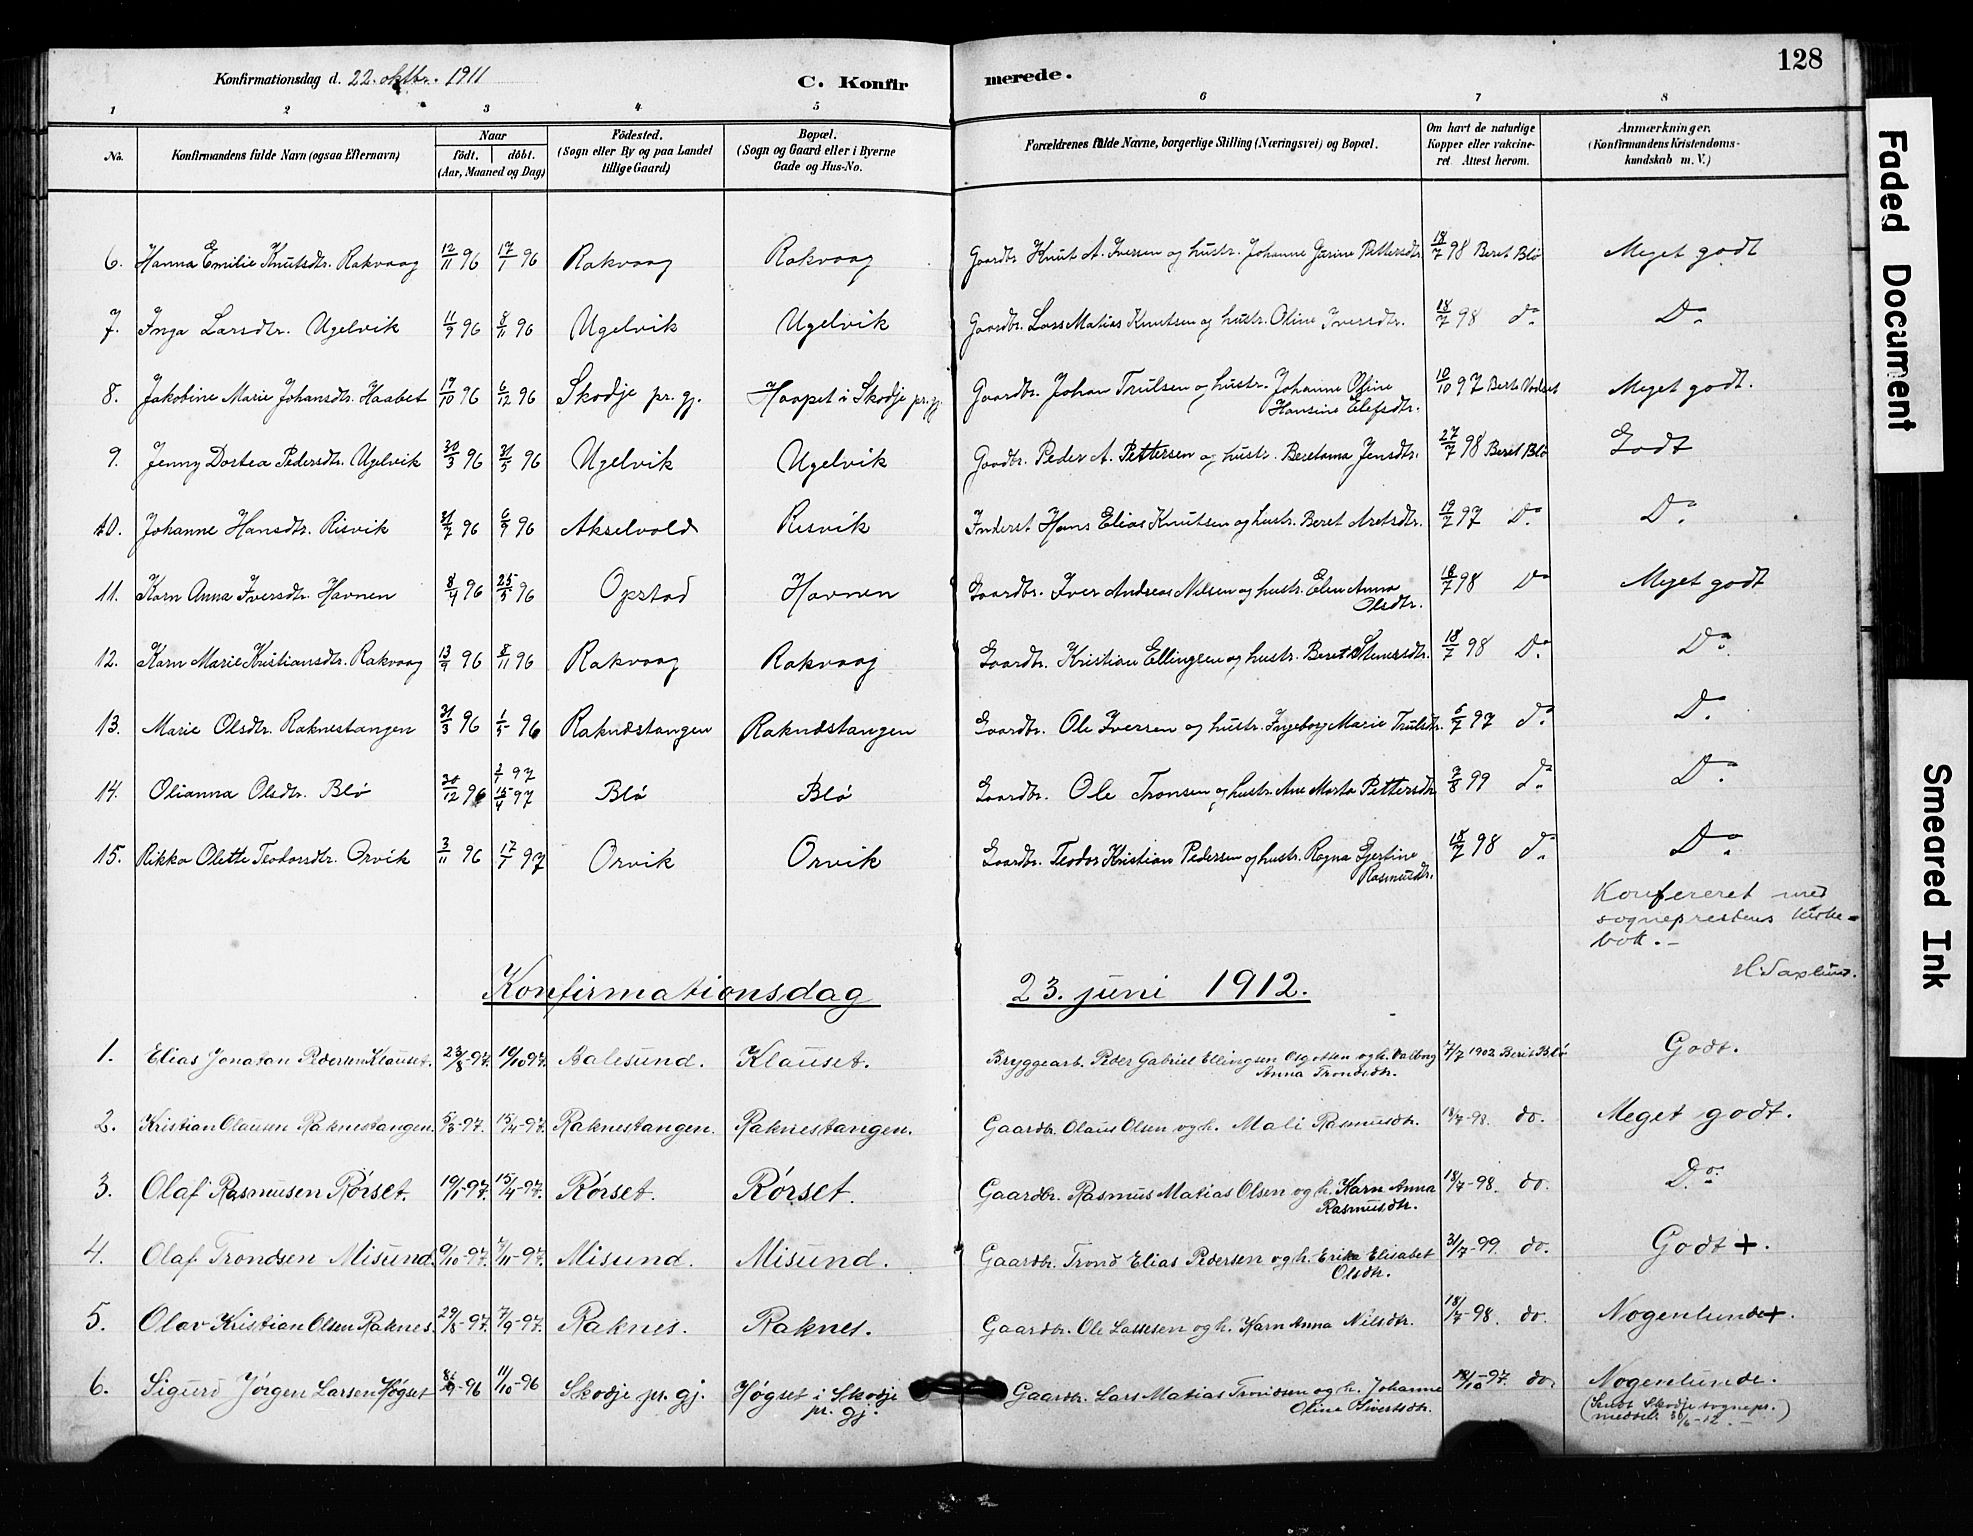 128
Konfirmationsdag d. 22. oktbr. 1911 C. Konfirmerede.
1 2 3 4 5 6 7 8
No. Konfirmandens fulde Navn (ogsaa Efternavn) Naar födt. döbt. (Aar, Maaned og Dag) Födested. (Sogn eller By og paa Landet tillige Gaard) Bopæl. (Sogn og Gaard eller i Byerne Gade og Hus-No. Forældrenes fulde Navne, borgerlige Stilling (Næringsvei) og Bopæl. Om havt de naturlige Kopper eller vakcineret. Attest herom. Anmærkninger. (Konfirmandens Kristendomskundskab m. V.)
6. Hanna Emilie Knutsdtr. Rakvaag 12/11 96 17/1 96 Rakvaag Rakvaag Gaardbr. Knut A. Iversen og hustr. Johanne Gurine Pettersdtr. 18/7 98 Beret Blø Meget godt
7. Inga Larsdtr. Ugelvik 11/9 96 8/11 96 Ugelvik Ugelvik Gaardbr. Lars Matias Knutsen og hustr. Oline Iversdtr. 18/7 98 do. Do.
8. Jakobine Marie Johansdtr. Haabet 17/10 96 6/12 96 Skodje pr. gj. Haapet i Skodje pr. gj. Gaardbr. Johan Trulsen og hustr. Johanne Oline
Hansine Elefsdtr. 10/10 97 Meget godt.
9. Jenny Dortea Pedersdtr. Ugelvik 30/3 96 31/5 96 Ugelvik Ugelvik Gaardbr. Peder A. Pettersen og hustr. Beretanna Jensdtr. 27/7 98 Beret Blø Godt
10. Johanne Hansdtr. Risvik 31/7 96 6/9 96 Akselvold Risvik Inderst Hans Elias Knutsen og hustr. Beret Aretsdtr. 19/7 97 Do. Do.
11. Karn Anna Iversdtr. Havnen 8/4 96 25/5 96 Opstad Havnen Gaardbr. Iver Andreas Nilsen og hustr. Elen Anna
Olsdtr. 18/7 98 Do Meget godt
12. Karn Marie Kristiansdtr. Rakvaag 13/9 96 8/11 96 Rakvaag Rakvaag Gaardbr. Kristian Ellingsen og hustr. Beret Stenersdtr. 18/7 98 Do. Do.
13. Marie Olsdtr. Raknestangen 31/3 96 1/5 96 Raknestangen Raknestangen Gaardbr. Ole Iversen og hustr. Ingeborg Marie Trulsdtr. 6/7 97 do. Do.
14. Olianna Olsdtr. Blø 30/12 96 2/1 97 15/4 97 Blø Blø Gaardbr. Ole Tronsen og hustr. Ane Marta Pettersdtr. 2/8 99 do. Do.
15. Rikka Olette Teodorsdtr. Orvik 3/11 96 17/1 97 Orvik Orvik Gaardbr. Teodor Kristian Pedersen og hustr. Ragna Gjertine
Rasmusdtr. 18/7 98 do. Do.
Konfereret med
sogneprestens kirke-
bok. –
H. Saxlund.
Konfirmationsdag 23. juni 1912.
1. Elias Jonatan Pedersen Klauset. 23/8-97. 10/10 97. Aalesund. Klauset. Bryggearb. Peder Gabriel Ellingsen og h. Valborg
Anna Trondsdtr. 7/7 1902 Berit Blø Godt.
2. Kristian Olausen Raknestangen. 5/3-97. 15/4-97. Raknestangen. Raknestangen. Gaardbr. Olaus Olsen og h. Mali Rasmusdtr. 18/7-98. do. Meget godt.
3. Olaf Rasmusen Rørset. 19/1-97. 15/4-97. Rørset. Rørset. Gaardbr. Rasmus Matias Olsen og h. Karn Anna
Rasmusdtr. 18/7-98. do. Do.
4. Olaf Trondsen Misund. 9/10-97. 7/11-97. Misund. Misund. Gaardbr. Trond Elias Pedersen og h. Erika Elisabet
Olsdtr. 31/7-99. do. Godt +.
5. Olav Kristian Olsen Raknes. 29/8-97. 7/9-97. Raknes. Raknes. Gaardbr. Ole Lassesen og h. Karn Anna Nilsdtr. 18/7-98. do. Nogenlunde +.
6. Sigurd Jørgen Larsen Høgset 8/9-96 11/10-96 Skodje pr. gj. Høgset i Skodje
pr. gj. Gaardbr. Lars Matias Trondsen og h. Johanne
Oline Sivertsdtr. 10-97. do. Nogenlunde.
(Sendt Skodje sognepr.
meddel. 30/6-12. –)
Faded Document
Smeared Ink